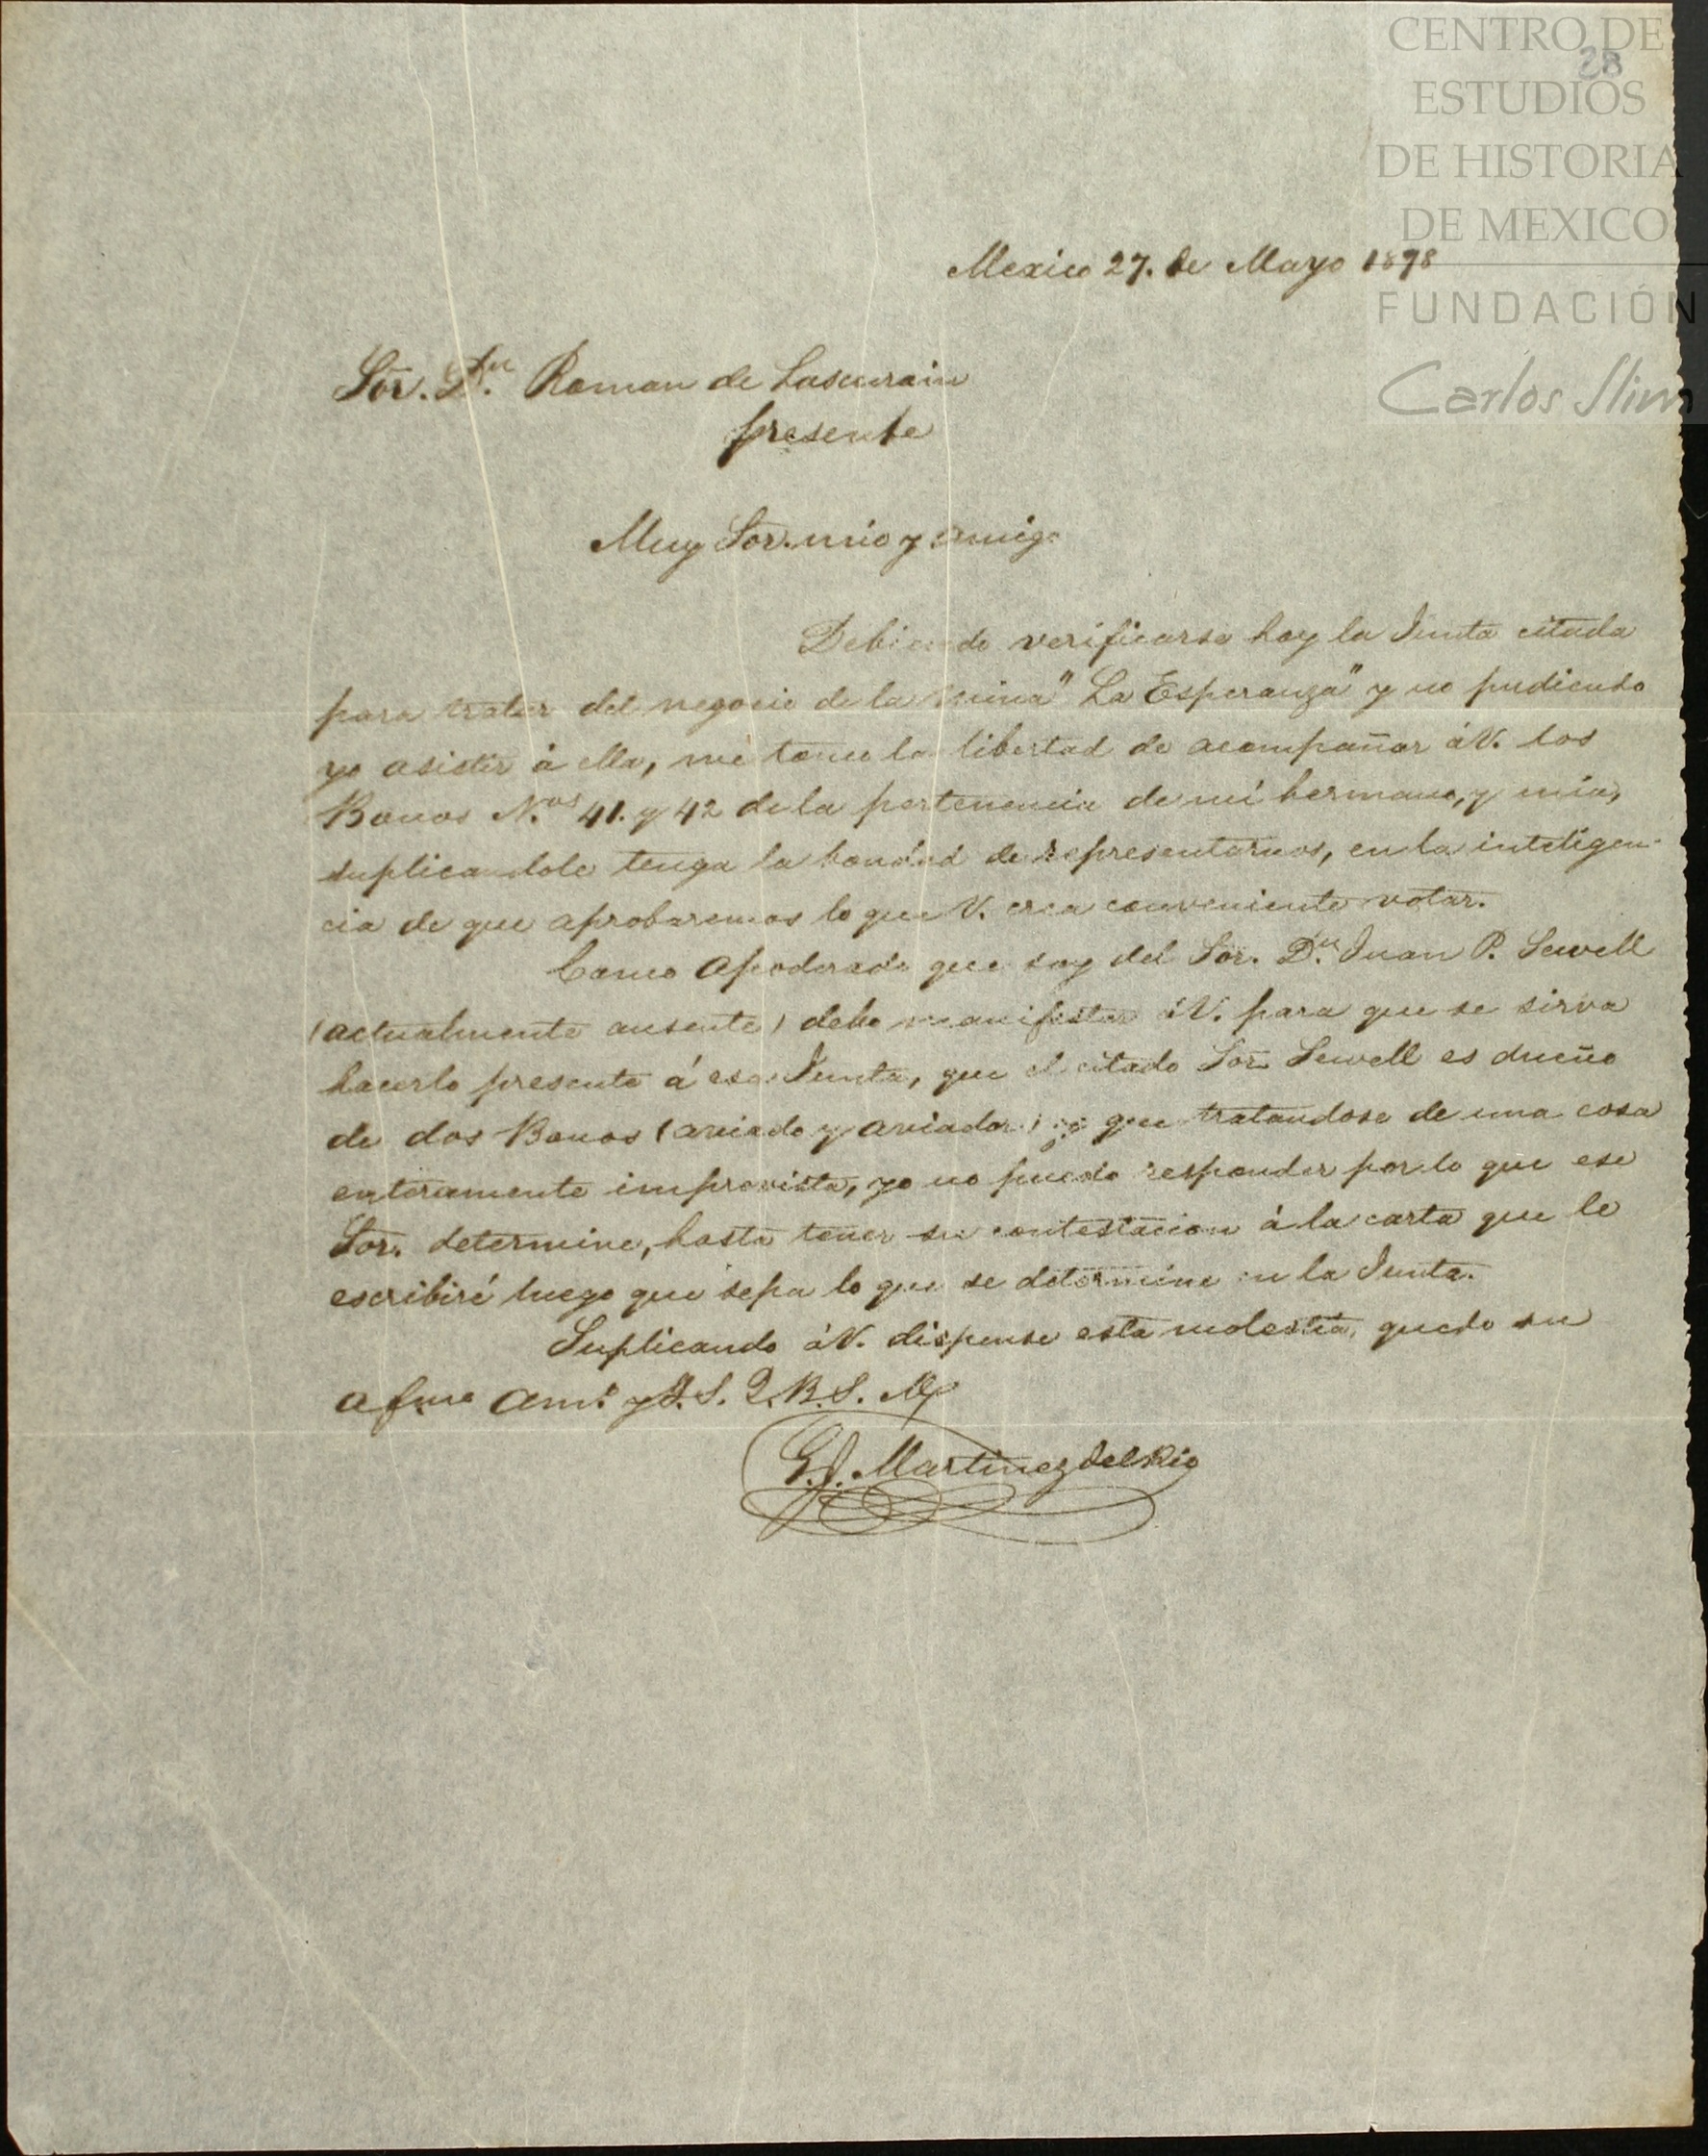 CENTRO DE
ESTUDIOS
DE HISTORIA
DE MEXICO
FUNDACIÓN
Carlos Slim
28
Mexico 27. de Mayo 1898
Sor. Dn. Roman de Lascurain
presente
Muy Sor. mio y amigo
Debiendo verificarse hoy la Junta citada
para tratar del negocio de la mina "La Esperanza" y no pudiendo
yo asistir á ella, me tomo la libertad de acompañar á V. los
Bonos N.os 41. y 42 de la pertenencia de mi hermano, y mia,
suplicandole tenga la bondad de representarnos, en la inteligen-
cia de que aprobaremos lo que V. crea conveniente votar.
Como Apoderado que soy del Sor. Dn. Juan P. Sewell
(actualmente ausente) debo manifestar á V. para que se sirva
hacerlo presente á esa Junta, que el citado Sor. Sewell es dueño
de dos Bonos (aviado y aviador) y que tratandose de una cosa
enteramente imprevista, yo no puedo responder por lo que ese
Sor. determine, hasta tener su contestacion á la carta que le
escribiré luego que sepa lo que se determine en la Junta.
Suplicando á V. dispense esta molestia, quedo su
afmo Amo. y S. S. Q. B. S. M
G. J. Martinez del Rio